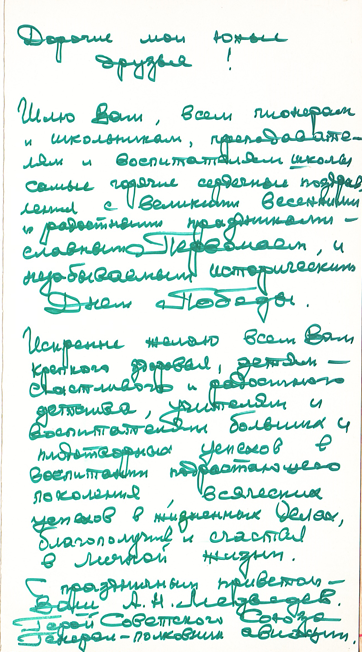 Дорогие мои юные
друзья !
Шлю Вам, всем пионерам
и школьникам, преподавате-
лям и воспитателям школы
самые горячие сердечные поздрав
ления с великими весенними
и радостными праздниками -
славным Первомаем, и
незабываемым историческим
Днем Победы.
Искренне желаю всем Вам
крепкого здоровья, детям -
счастливого и радостного
детства, учителям и
воспитателям больших и
плодотворных успехов в
воспитании подрастающего
поколения, всяческих
успехов в жизненных делах,
благополучия и счастья
в личной жизни.
С праздничным приветом -
Ваш А.Н. Медведев.
Герой Советского Союза
Генерал-полковник авиации.